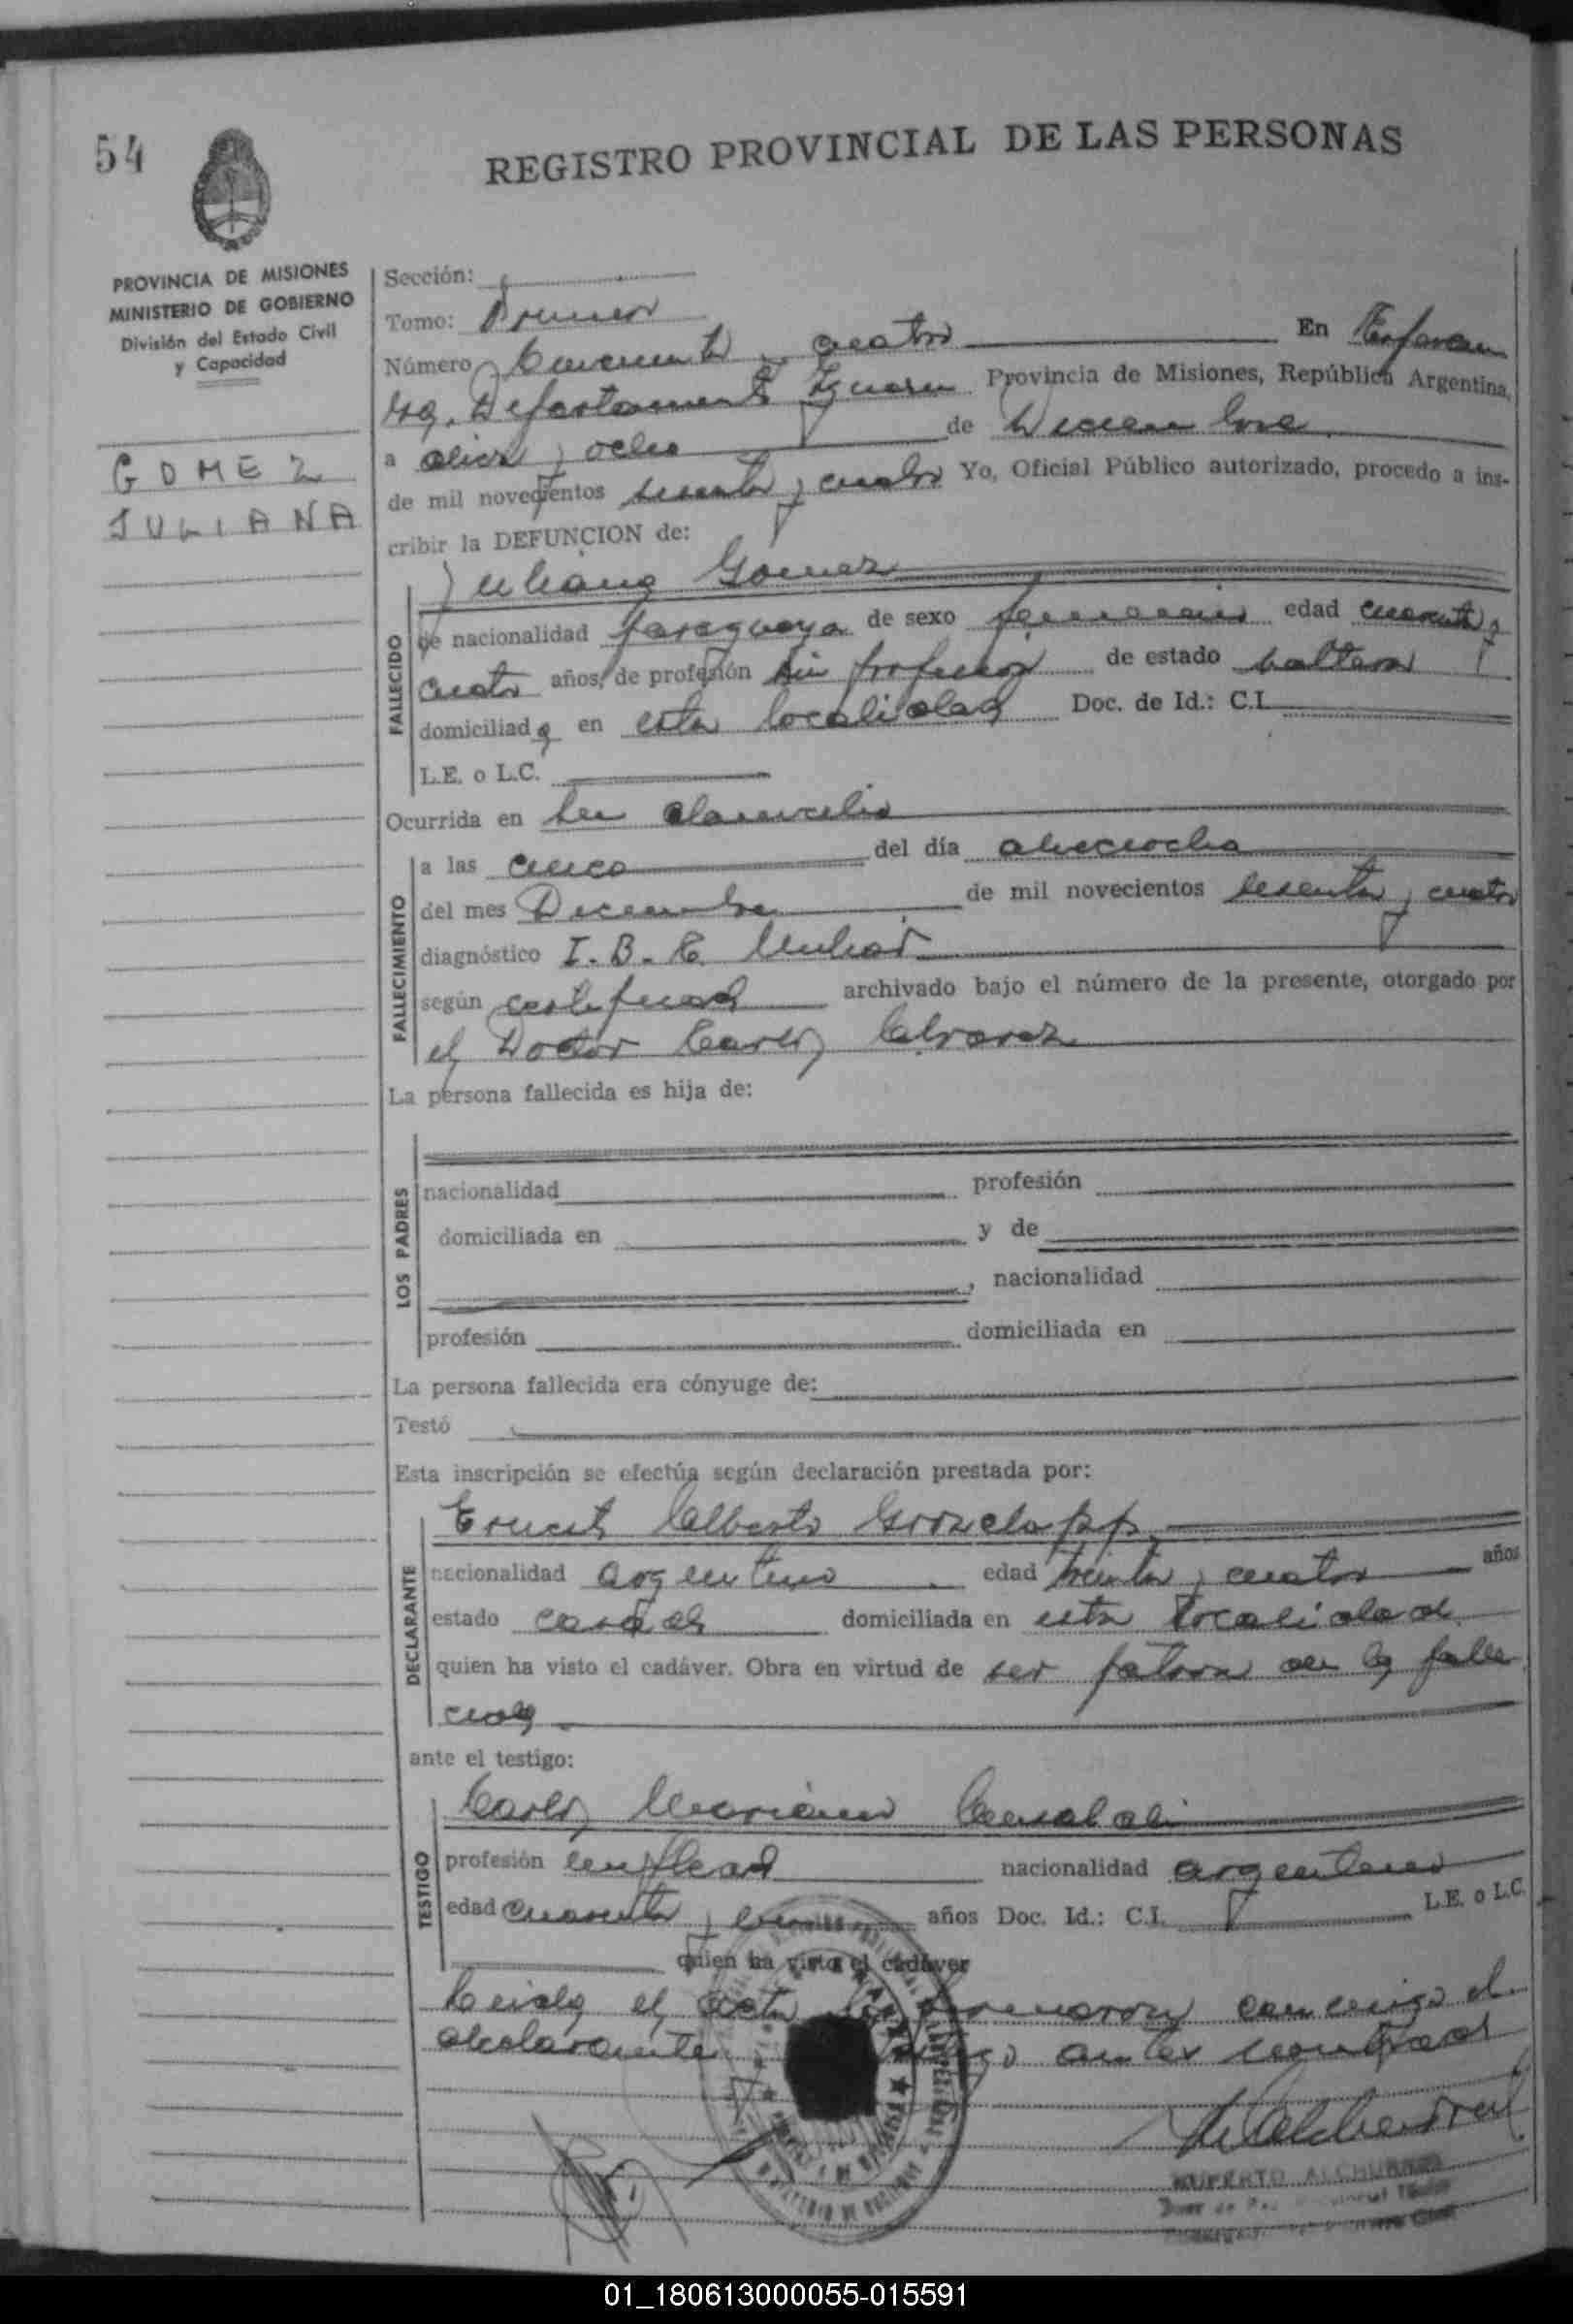 54
REGISTRO PROVINCIAL DE LAS PERSONAS
PROVINCIA DE MISIONES
MINISTERIO DE GOBIERNO
División del Estado Civil
y Capacidad
GOMEZ
JULIANA
Sección:
Tomo: Primero
Número Cincuenta y cuatro En Esperan
za, Departamento Iguazu Provincia de Misiones, República Argentina,
a diez y ocho de Diciembre
de mil novecientos sesenta y cuatro Yo, Oficial Público autorizado, procedo a ins-
cribir la DEFUNCION de:
Juliana Gomez
FALLECIDO
de nacionalidad paraguaya de sexo femenino edad cuarenta y
cuatro años, de profesión sin profesion de estado soltera
domiciliada en esta localidad Doc. de Id.: C.I.
L.E. o L.C.
Ocurrida en su domicilio
FALLECIMIENTO
a las cinco del día dieciocho
del mes Diciembre de mil novecientos sesenta y cuatro
diagnóstico I. B. C.
según certificado archivado bajo el número de la presente, otorgado por
el Doctor Carlos Alvarez
La persona fallecida es hija de:
LOS PADRES
nacionalidad profesión
domiciliada en y de
, nacionalidad
profesión domiciliada en
La persona fallecida era cónyuge de:
Testó
Esta inscripción se efectúa según declaración prestada por:
DECLARANTE
Ernesto Alberto
nacionalidad argentino edad treinta y cuatro años
estado casado domiciliada en esta localidad
quien ha visto el cadáver. Obra en virtud de ser patron de la falle
cida
ante el testigo:
TESTIGO
Carlos Mariano
profesión empleado nacionalidad argentino
edad cuarenta y años Doc. Id.: C.I. L.E. o L.C.
quien ha visto el cadáver
Leida el acta la firmaron conmigo el
declarante testigo antes nombrado
RUPERTO
01_180613000055-015591